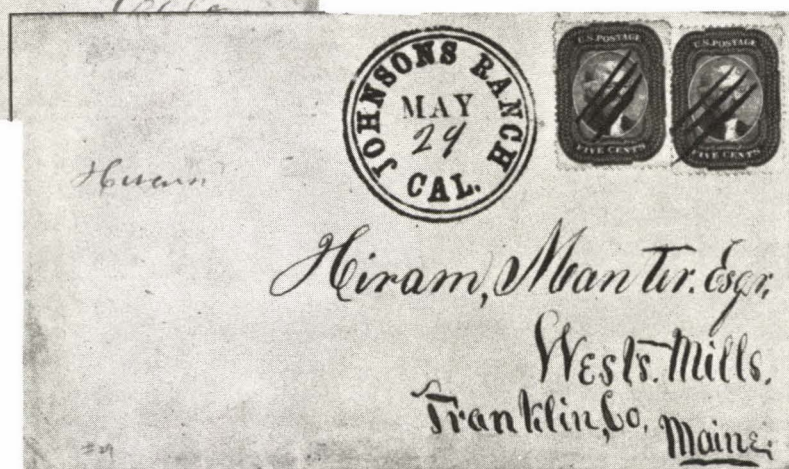 JOHNSONS RANCH
MAY
29
CAL.
U.S. POSTAGE
FIVE CENTS
U.S. POSTAGE
FIVE CENTS
Hiram, Manter. Esqr,
Wests. Mills.
Franklin, Co,
Maine.